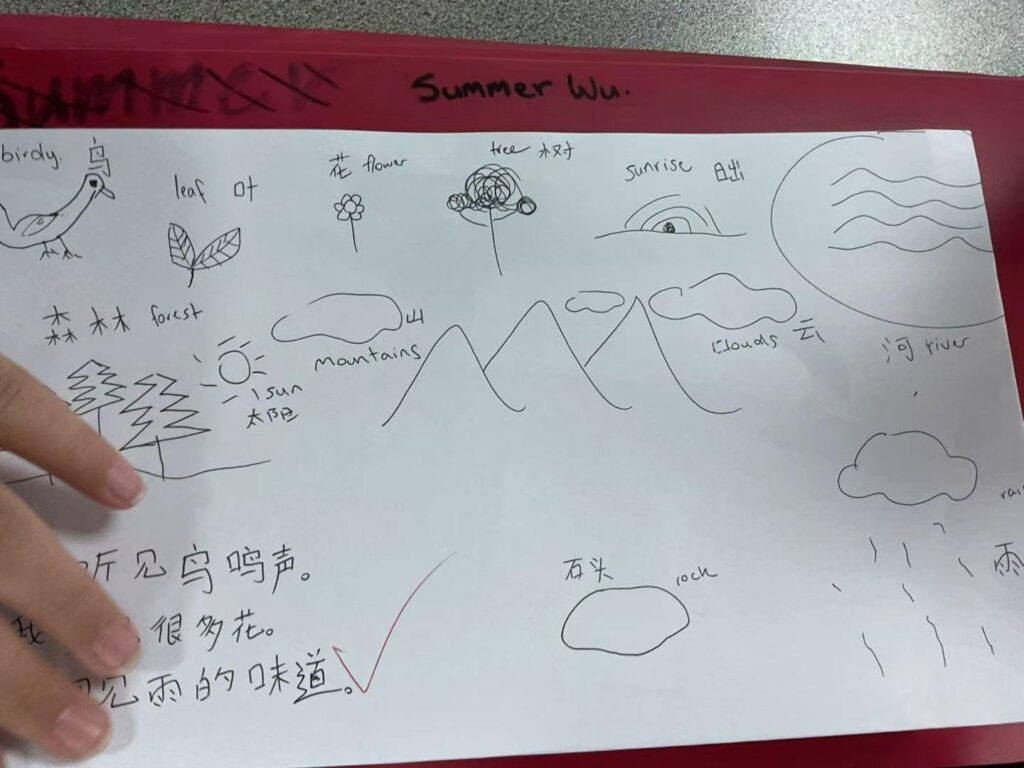 Summer
Summer Wu.
birdy. 鸟
leaf 叶
花 flower
tree 树
sunrise 日出
森林 forest
山
mountains
clouds 云
河 river
sun
太阳
听见鸟鸣声。
我 很多花。
见雨的味道。
石头
rock
雨